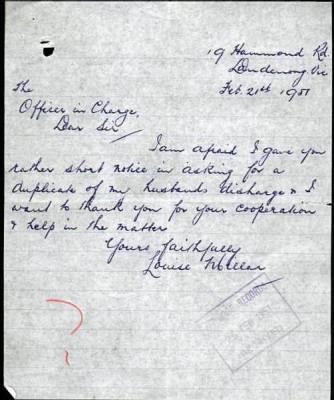 19 Hammond Rd.
Dandenong Vic
Feb. 21st 1951
The
Officer in Charge,
Dear Sir
I am afraid I gave you
rather short notice in asking for a
duplicate of my husbands discharge & I
want to thank you for your cooperation
& help in the matter
Yours faithfully
Louise
RECORDS
1951